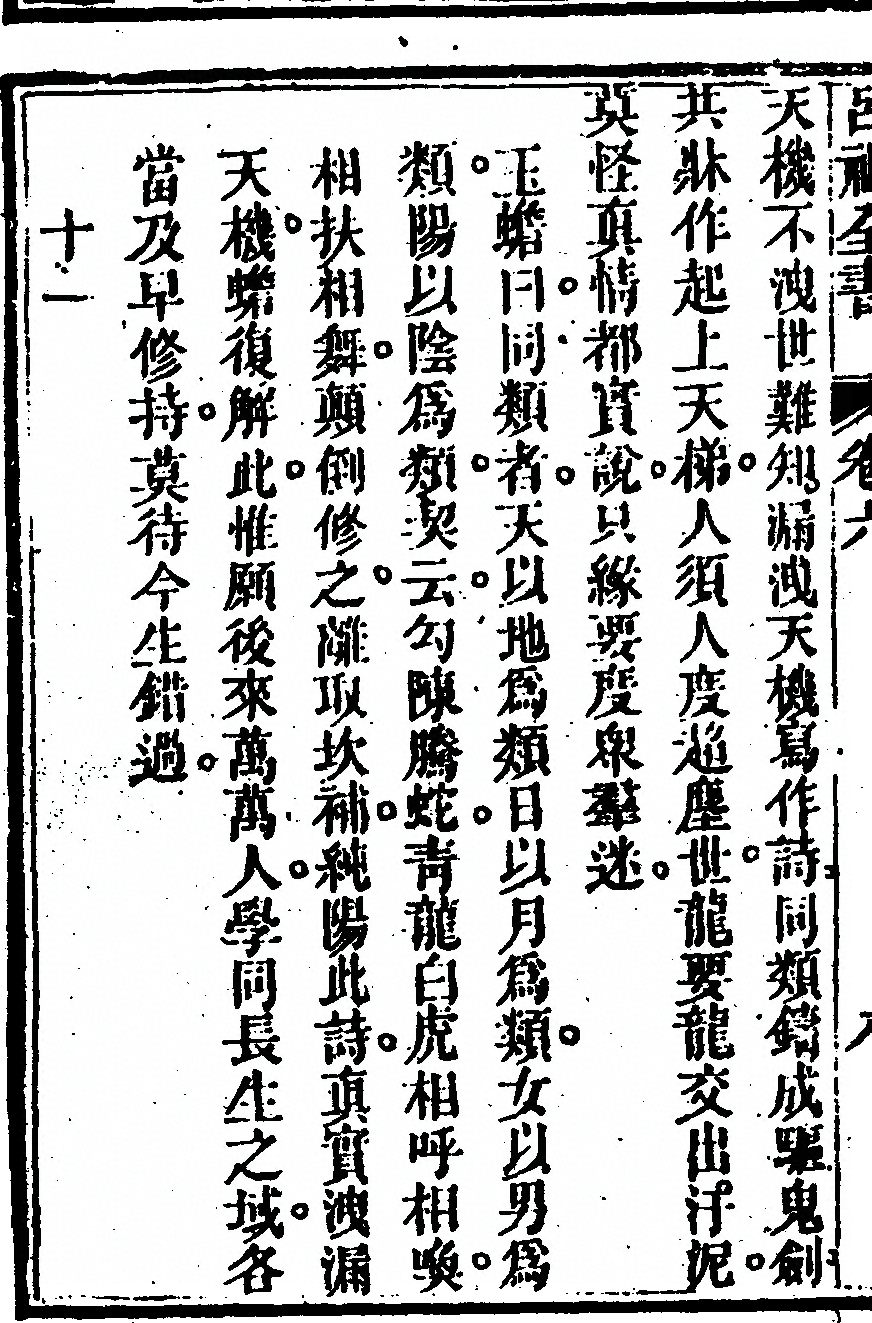 呂祖全書 卷六 八
天機不洩世難知漏洩天機寫作詩同類鑄成驅鬼劍
共牀作起上天梯人須人度超塵世龍要龍交出汙泥
莫怪真情都實說只緣要度眾羣迷
玉蟾曰同類者天以地爲類日以月爲類女以男爲
類陽以陰爲類契云勾陳騰蛇青龍白虎相呼相喚
相扶相舞顛倒修之離取坎補純陽此詩真實洩漏
天機蟾復解此惟願後來萬萬人學同長生之域各
當及早修持莫待今生錯過
十一